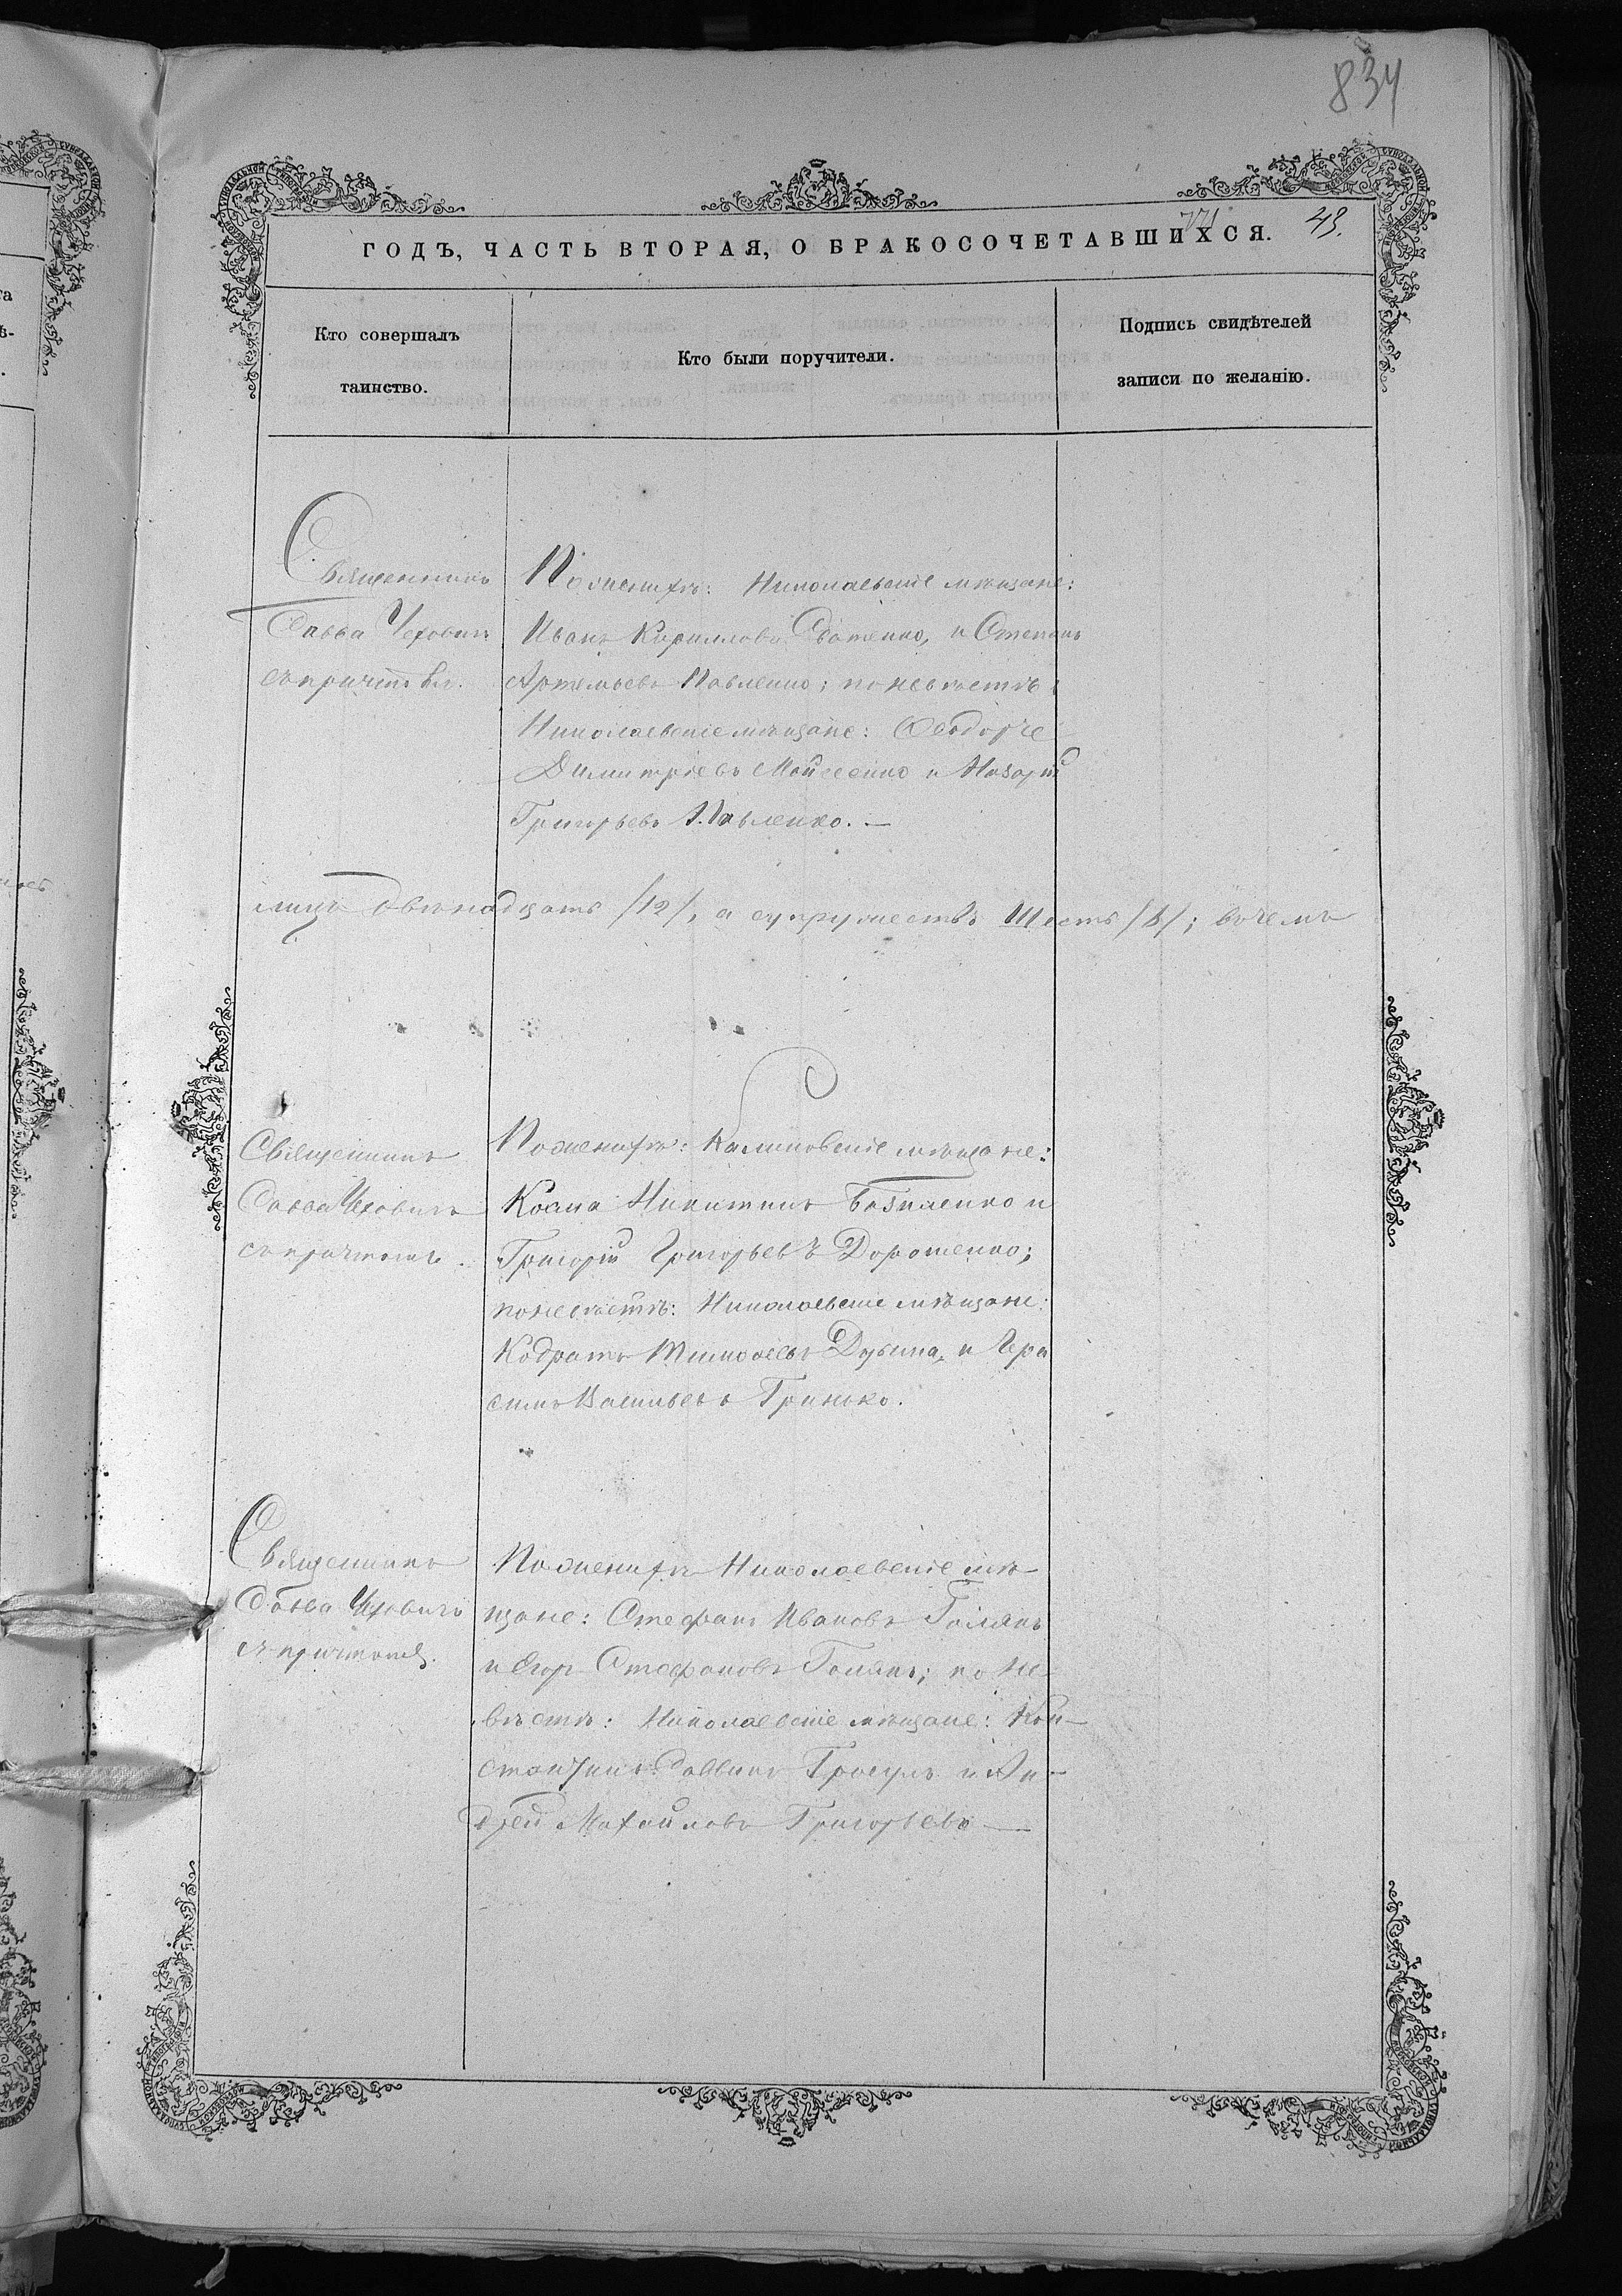 834
771 43.
ГОДЪ, ЧАСТЬ ВТОРАЯ, О БРАКОСОЧЕТАВШИХСЯ.
Кто совершалъ
таинство.
Кто были поручители.
Подпись свидѣтелей
записи по желанію.
Священникъ
Савва Чеховичъ
съ причтомъ.
По женихѣ: Николаевскіе мѣщане:
Иванъ Кирилловъ и Степанъ
Артемьевъ Павленко; по невѣстѣ:
Николаевскіе мѣщане: Ѳеодоръ
Димитріевъ Мойсеенко и Назарій
Григорьевъ Павленко. —
лицъ двѣнадцать /12/, а супружествъ шесть /6/; въ чемъ
Священникъ
Савва Чеховичъ
съ причтомъ.
По женихѣ: Калиновскіе мѣщане:
Косма Никитинъ и
Григорій Григорьевъ Дорошенко;
по невѣстѣ: Николаевскіе мѣщане:
Кодратъ Тимоѳеевъ и Гера
симъ Васильевъ Гринько.
Священникъ
Савва Чеховичъ
съ причтомъ.
По женихѣ Николаевскіе мѣ-
щане: Стефанъ Ивановъ
и Егоръ Стефановъ по не-
вѣстѣ: Николаевскіе мѣщане: Кон-
стантинъ Саввинъ и Ан-
дрей Михайловъ Григорьевъ —